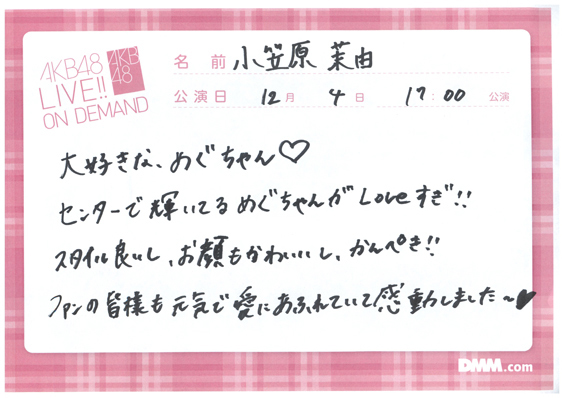 AKB48
LIVE!!
ON DEMAND
AKB
48
名前 小笠原 茉由
公演日 12月 4日 17:00 公演
大好きな、めぐちゃん♡
センターで輝いてるめぐちゃんがLoveすぎ!!
スタイル良いし、お顔もかわいいし、かんぺき!!
ファンの皆様も元気で愛にあふれていて感動しました〜♥
DMM.com